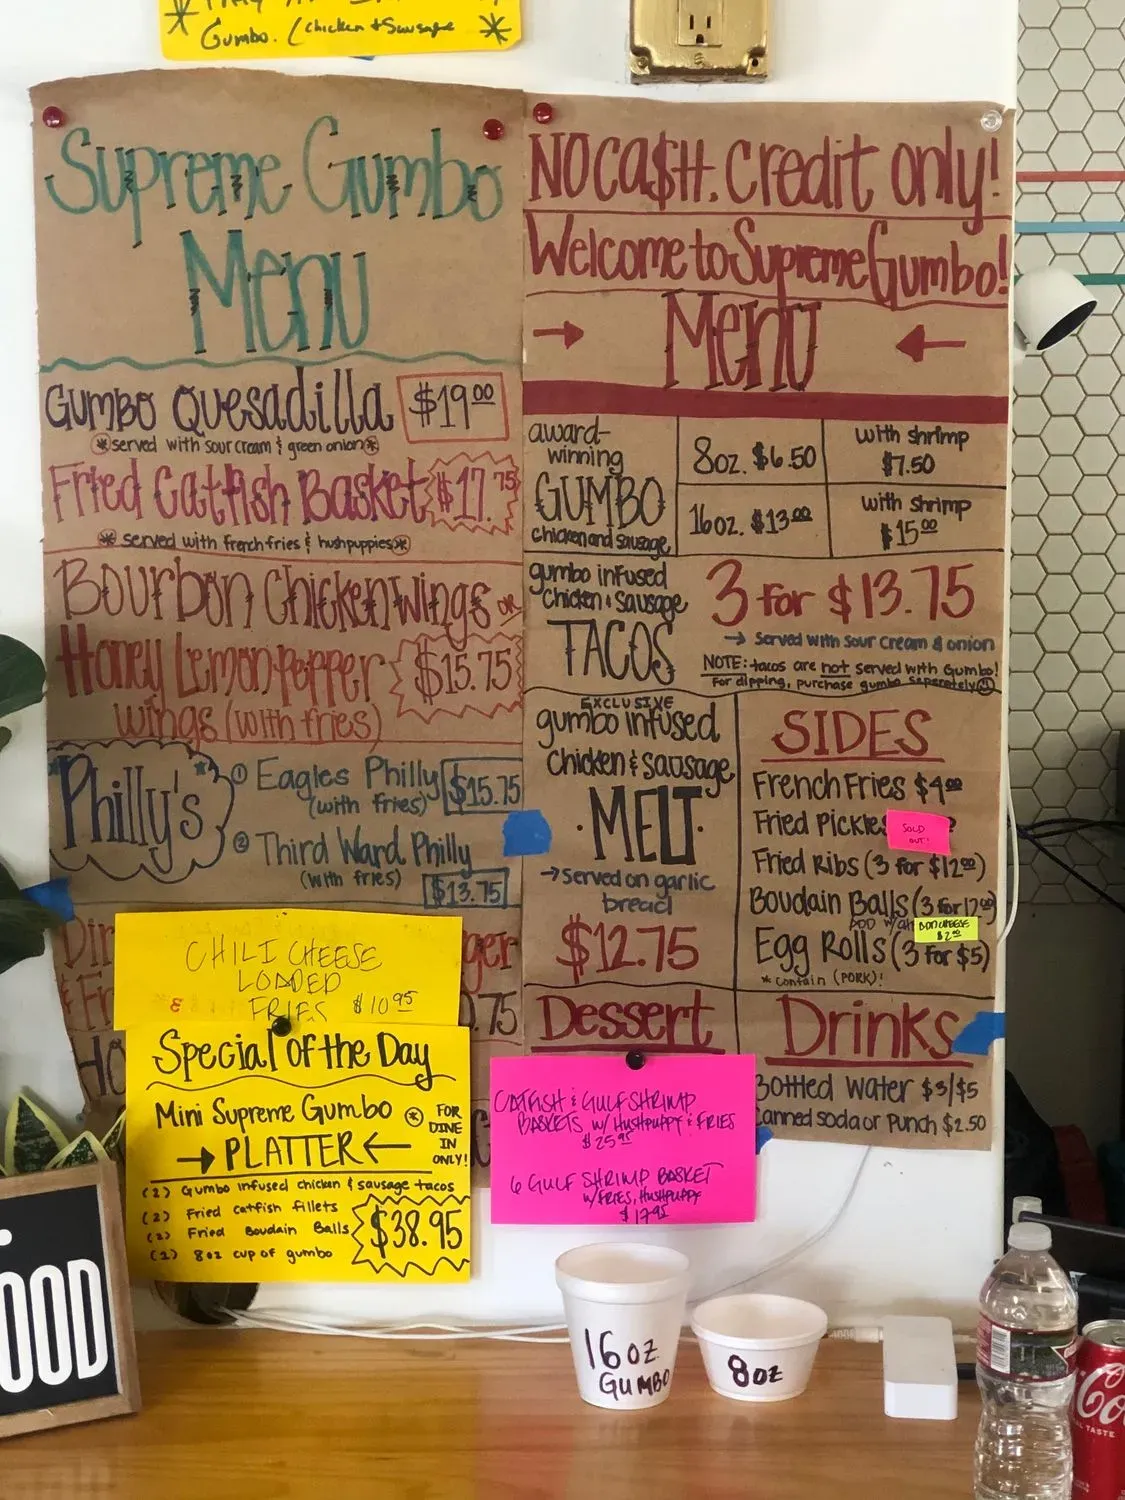 Gumbo. (chicken + Sausage
Supreme Gumbo
Menu
Gumbo Quesadilla $19.00
*served with sour cream & green onion*
Fried Catfish Basket $17.75
* served with french fries & hushpuppies*
Bourbon Chicken Wings or
Honey Lemon-Pepper $15.75
wings (with fries)
Philly's
① Eagles Philly $15.75
(with fries)
② Third Ward Philly
(with fries) $13.75
CHILI CHEESE
LOADED
FRIES $10.95
Special of the Day
Mini Supreme Gumbo
→ PLATTER ←
* FOR
DINE
IN
ONLY!
(2) Gumbo infused chicken & sausage tacos
(2) Fried catfish fillets
(2) Fried Boudain Balls
(1) 8oz cup of gumbo
$38.95
NO CA$H. Credit only!
Welcome to Supreme Gumbo!
→ Menu ←
award-
winning
GUMBO
chicken and sausage
8oz. $6.50
with shrimp
$7.50
16oz. $13.00
with shrimp
$15.00
gumbo infused
chicken & sausage
TACOS
3 for $13.75
→ Served with sour cream & onion
NOTE: tacos are not served with Gumbo!
For dipping, purchase gumbo separately
EXCLUSIVE
gumbo infused
chicken & sausage
·MELT·
→served on garlic
bread
$12.75
SIDES
French Fries $4.00
Fried Pickles
SOLD
OUT!
Fried Ribs (3 for $12.00)
Boudain Balls (3 for 12.00)
ADD CHEESE
$2.00
Egg Rolls (3 for $5)
*contain (PORK)!
Dessert
CATFISH & GULF SHRIMP
BASKETS w/ HUSHPUPPY & FRIES
$25.95
6 GULF SHRIMP BASKET
w/FRIES, HUSHPUPPY
$17.95
Drinks
Bottled Water $3/$5
Canned soda or Punch $2.50
OOD
16oz
GUMBO
8oz